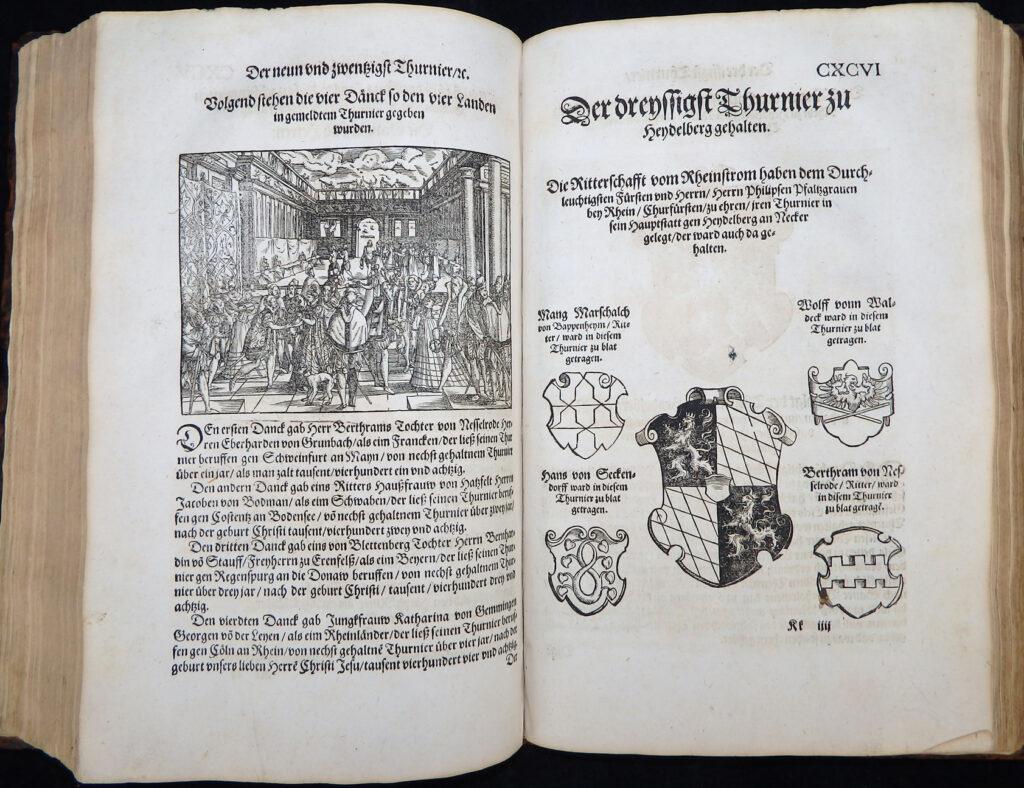 Der neun vnd zwentzigst Thurnier/ꝛc.
Volgend stehen die vier Dänck so den vier Landen
in gemeldtem Thurnier gegeben
wurden.
DEn ersten Danck gab Herr Berthrams Tochter von Nesselrode Her-
ren Eberharden von Grunbach/als eim Francken/der ließ seinen Thur
nier beruffen gen Schweinfurt an Mayn/von nechst gehaltnem Thurnier
über ein jar/als man zalt tausent/vierhundert ein vnd achtzig.
Den andern Danck gab eins Ritters Haußfrauw von Hatzfelt Herren
Jacoben von Bodman/als eim Schwaben/der ließ seinen Thurnier beruf-
fen gen Costentz an Bodensee/vō nechst gehaltnem Thurnier über zwey jar/
nach der geburt Christi tausent/vierhundert zwey vnd achtzig.
Den dritten Danck gab eins von Blettenberg Tochter Herrn Bernhar-
din vō Stauff/Freyherrn zu Erenfelß/als eim Beyern/der ließ seinen Thur
nier gen Regenspurg an die Donaw beruffen/von nechst gehaltnem Thur
nier über drey jar/nach der geburt Christi/tausent/vierhundert drey vnd
achtzig.
Den vierdten Danck gab Jungkfrauw Katharina von Gemmingen
Georgen vō der Leyen/als eim Rheinländer/der ließ seinen Thurnier beruf
fen gen Cöln an Rhein/von nechst gehaltnē Thurnier über vier jar/nach der
geburt vnsers lieben Herrē Christi Jesu/tausent vierhundert vier vnd achtzig.
Der
CXCVI
Der dreyssigst Thurnier zu
Heydelberg gehalten.
Die Ritterschafft vom Rheinstrom haben dem Durch-
leuchtigsten Fürsten vnd Herrn/Herrn Philipsen Pfaltzgrauen
bey Rhein/Churfürsten/zu ehren/jren Thurnier in
sein Hauptstatt gen Heydelberg an Necker
gelegt/der ward auch da ge-
halten.
Mang Marschalch
von Bappenheym/Rit-
ter/ward in diesem
Thurnier zu blat
getragen.
Wolff vonn Wal-
deck ward in diesem
Thurnier zu blat
getragen.
Hans von Secken-
dorff ward in diesem
Thurnier zu blat
getragen.
Berthram von Nes-
selrode/Ritter/ward
in disem Thurnier
zu blat getragē.
Kk iiij